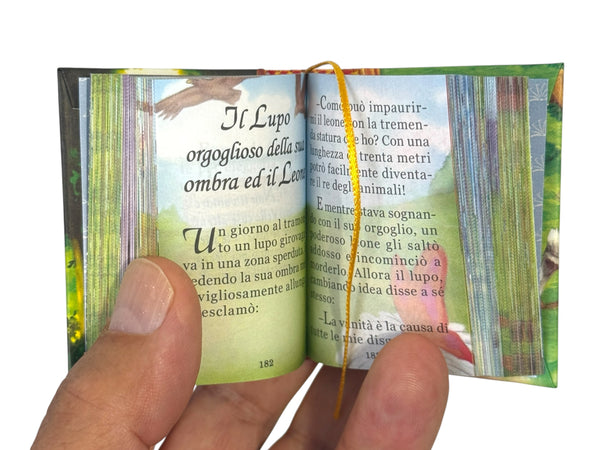 Il Lupo
orgoglioso della sua
ombra ed il Leone
Un giorno al tramon-
to un lupo girovaga-
va in una zona sperduta.
Vedendo la sua ombra
vigliosamente
esclamò:
182
-Come può impaurir-
mi il leone con la tremen-
da statura che ho? Con una
lunghezza di trenta metri
potrò facilmente diventa-
re il re degli animali!
E mentre stava sognan-
do con il suo orgoglio, un
poderoso leone gli saltò
addosso e incominciò a
morderlo. Allora il lupo,
cambiando idea disse a sé
stesso:
-La vanità è la causa di
tutte le mie